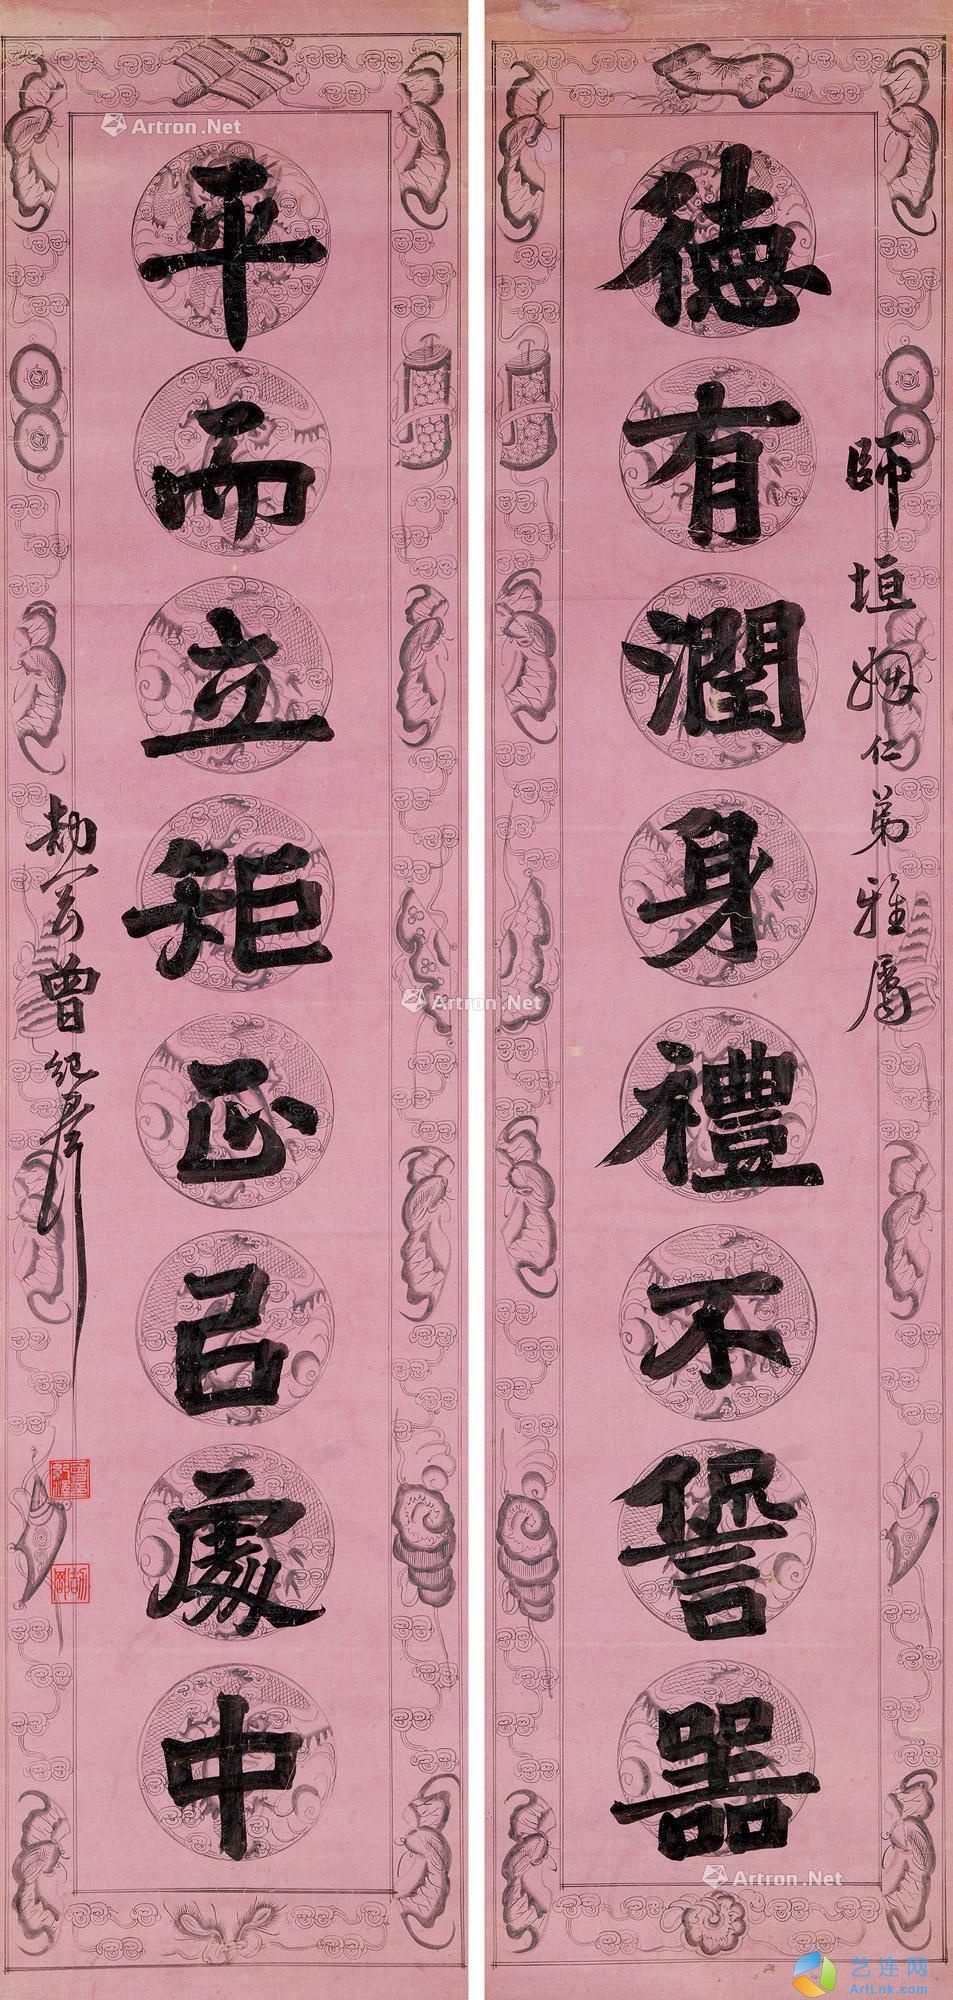 德有潤身禮不諐器
師垣姻仁弟雅屬
平而立矩正己處中
曾紀澤
曾印紀澤
劼剛
Artron.Net
Artron.Net
Artron.Net
艺连网
ArtLnk.com